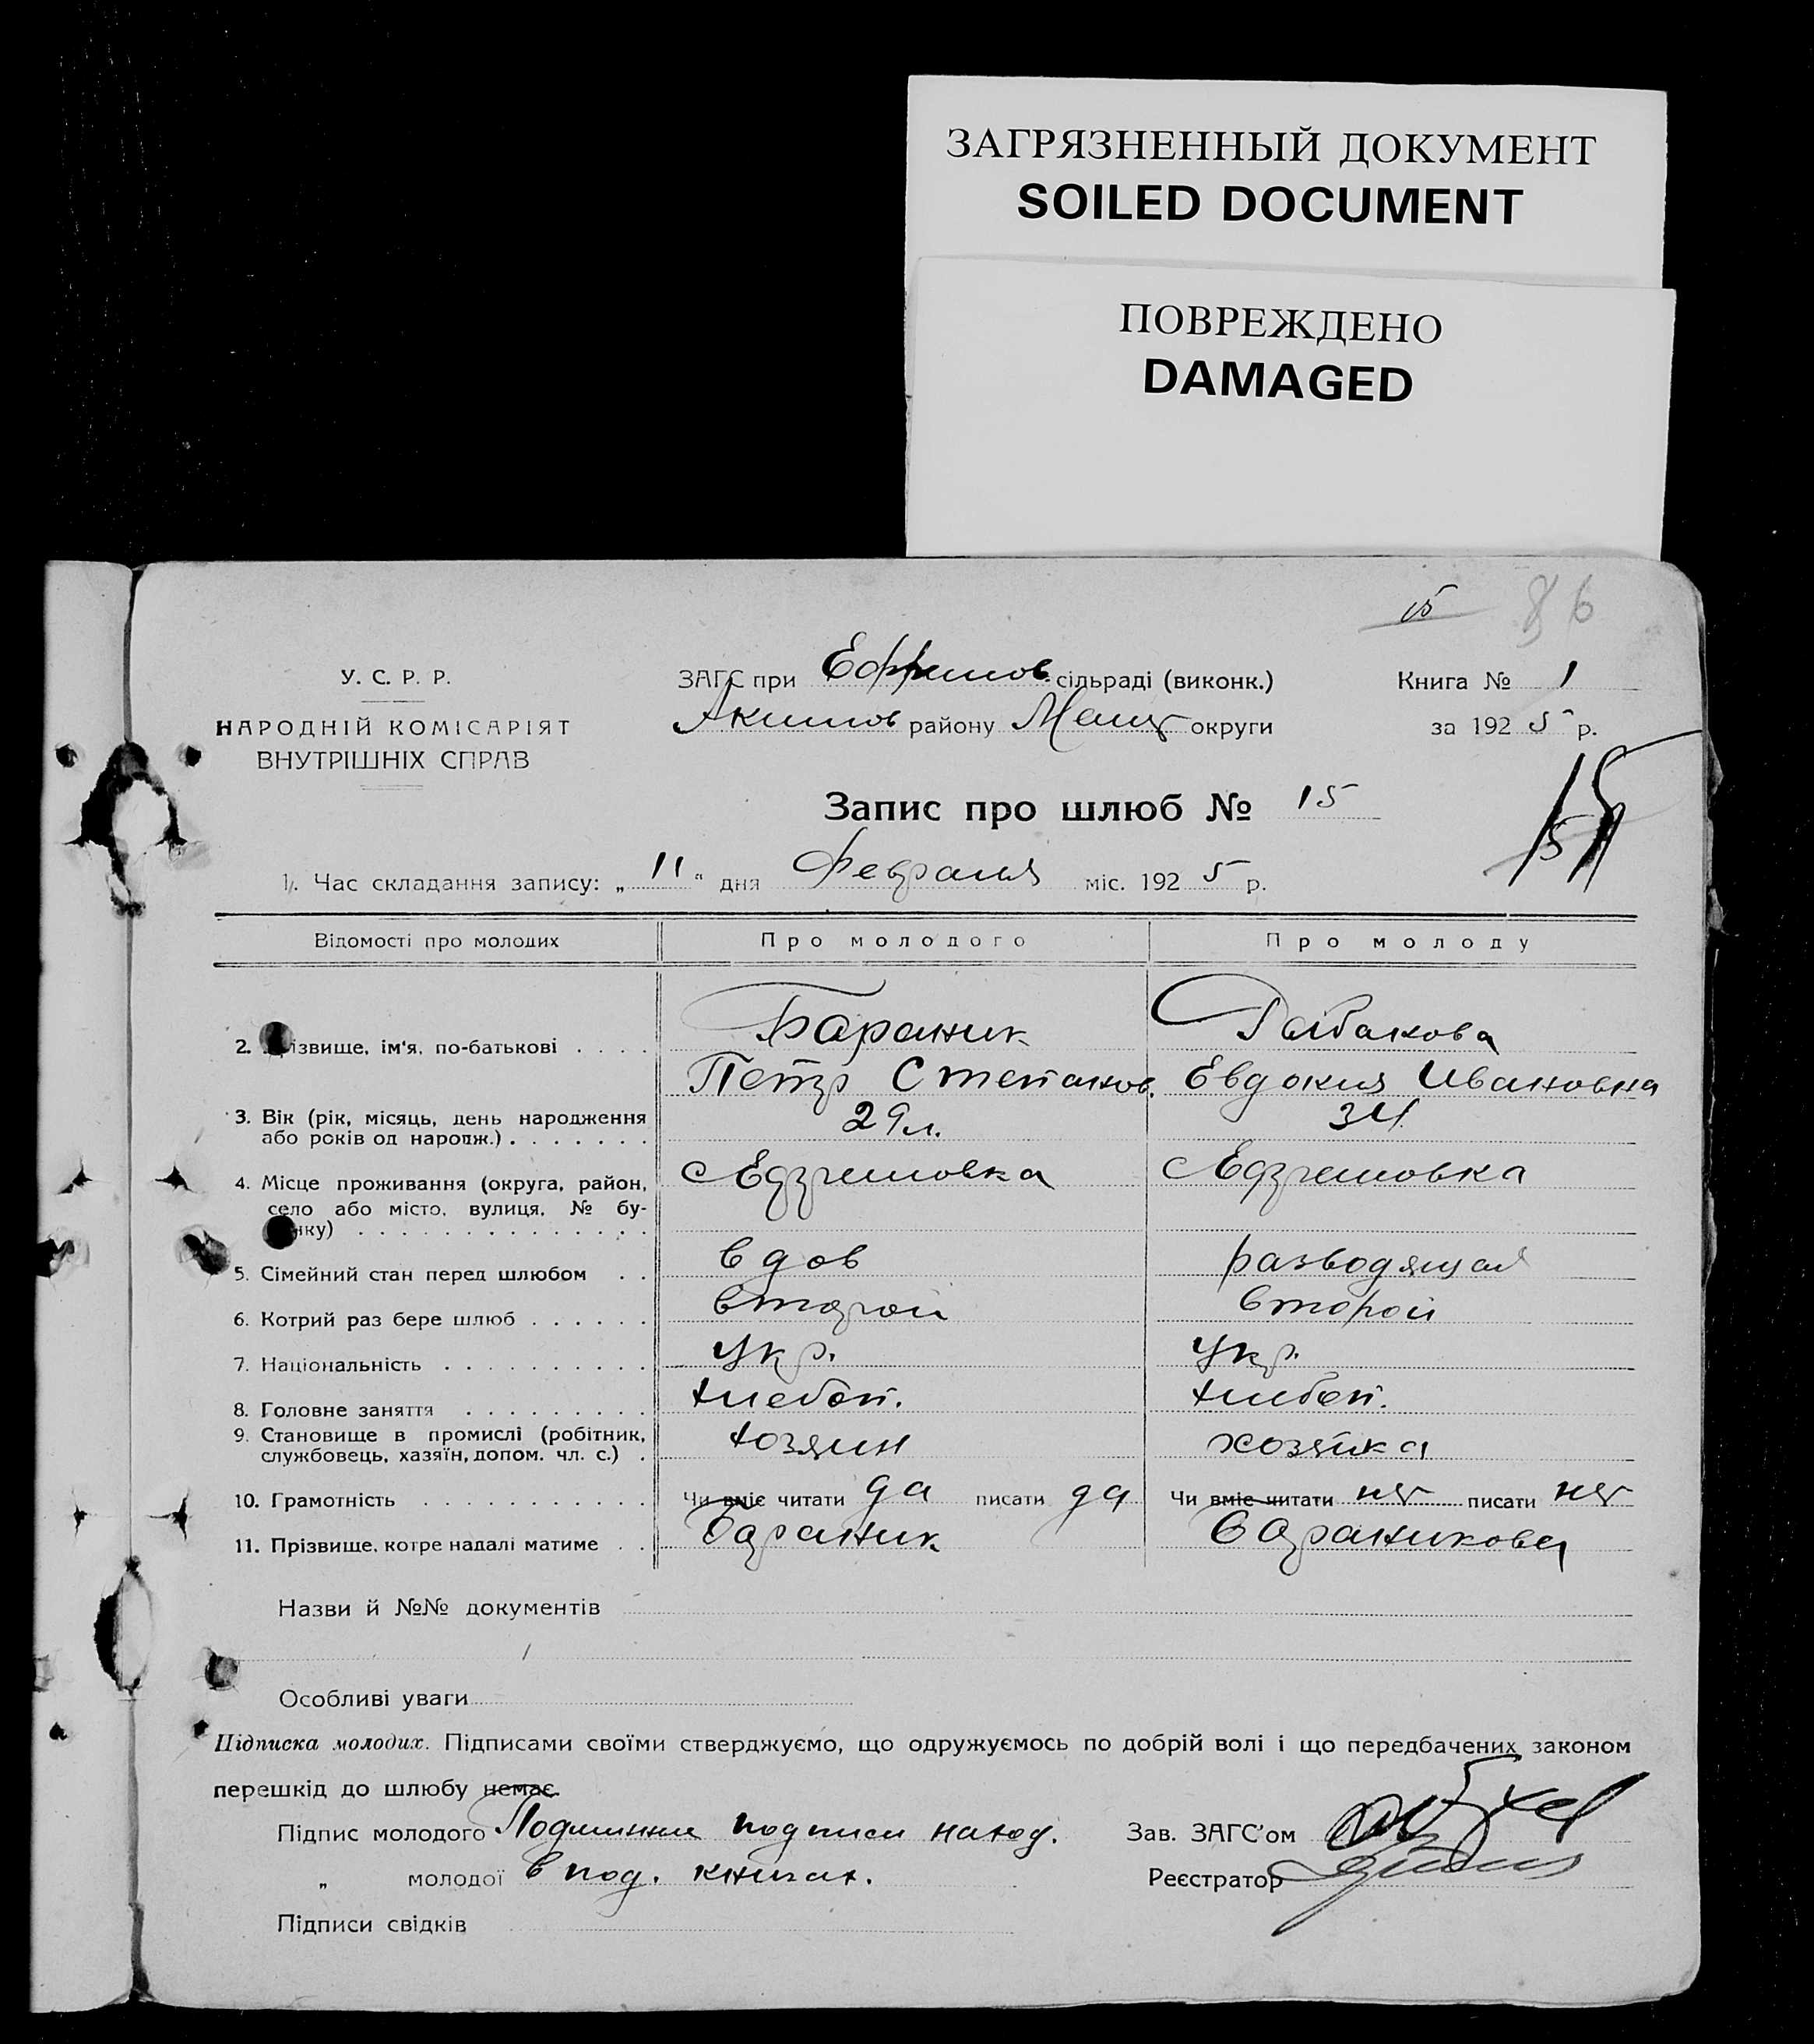 ЗАГРЯЗНЕННЫЙ ДОКУМЕНТ
SOILED DOCUMENT
ПОВРЕЖДЕНО
DAMAGED
15 86
У. С. Р. Р.
НАРОДНІЙ КОМІСАРІЯТ
ВНУТРІШНІХ СПРАВ
ЗАГС при Ефремов. сільраді (виконк.)
Акимов району Мелит округи
Книга № 1
за 1925 р.
Запис про шлюб № 15
1. Час складання запису: „11“ дня Февраля міс. 1925 р.
Відомості про молодих Про молодого Про молоду
2. різвище, ім'я, по-батькові . . . . Бараник Рыбакова
Петр Степанов. Евдокия Ивановна
3. Вік (рік, місяць, день народження
або років од народж.) . . . . . . . 29 л. 34
4. Місце проживання (округа, район, с Ефремовка с Ефремовка
село або місто, вулиця, № бу-
нку) . . . . . . . . . . . . . .
5. Сімейний стан перед шлюбом . . вдов разводящая
6. Котрий раз бере шлюб . . . . . . второй второй
7. Національність . . . . . . . . . . Укр. Укр.
8. Головне заняття . . . . . . . . . хлебоп. хлебоп.
9. Становище в промислі (робітник,
службовець, хазяїн, допом. чл. с.) . хозяин хозяйка
10. Грамотність . . . . . . . . . . . Чи вміє читати да писати да Чи вміє читати нет писати нет
11. Прізвище, котре надалі матиме . . Бараник Бараникова
Назви й №№ документів
Особливі уваги
Підписка молодих. Підписами своїми стверджуємо, що одружуємось по добрій волі і що передбачених законом
перешкід до шлюбу немає.
Підпис молодого Подлинни подписи наход. Зав. ЗАГС'ом
„ молодої в под. книгах. Реєстратор
Підписи свідків